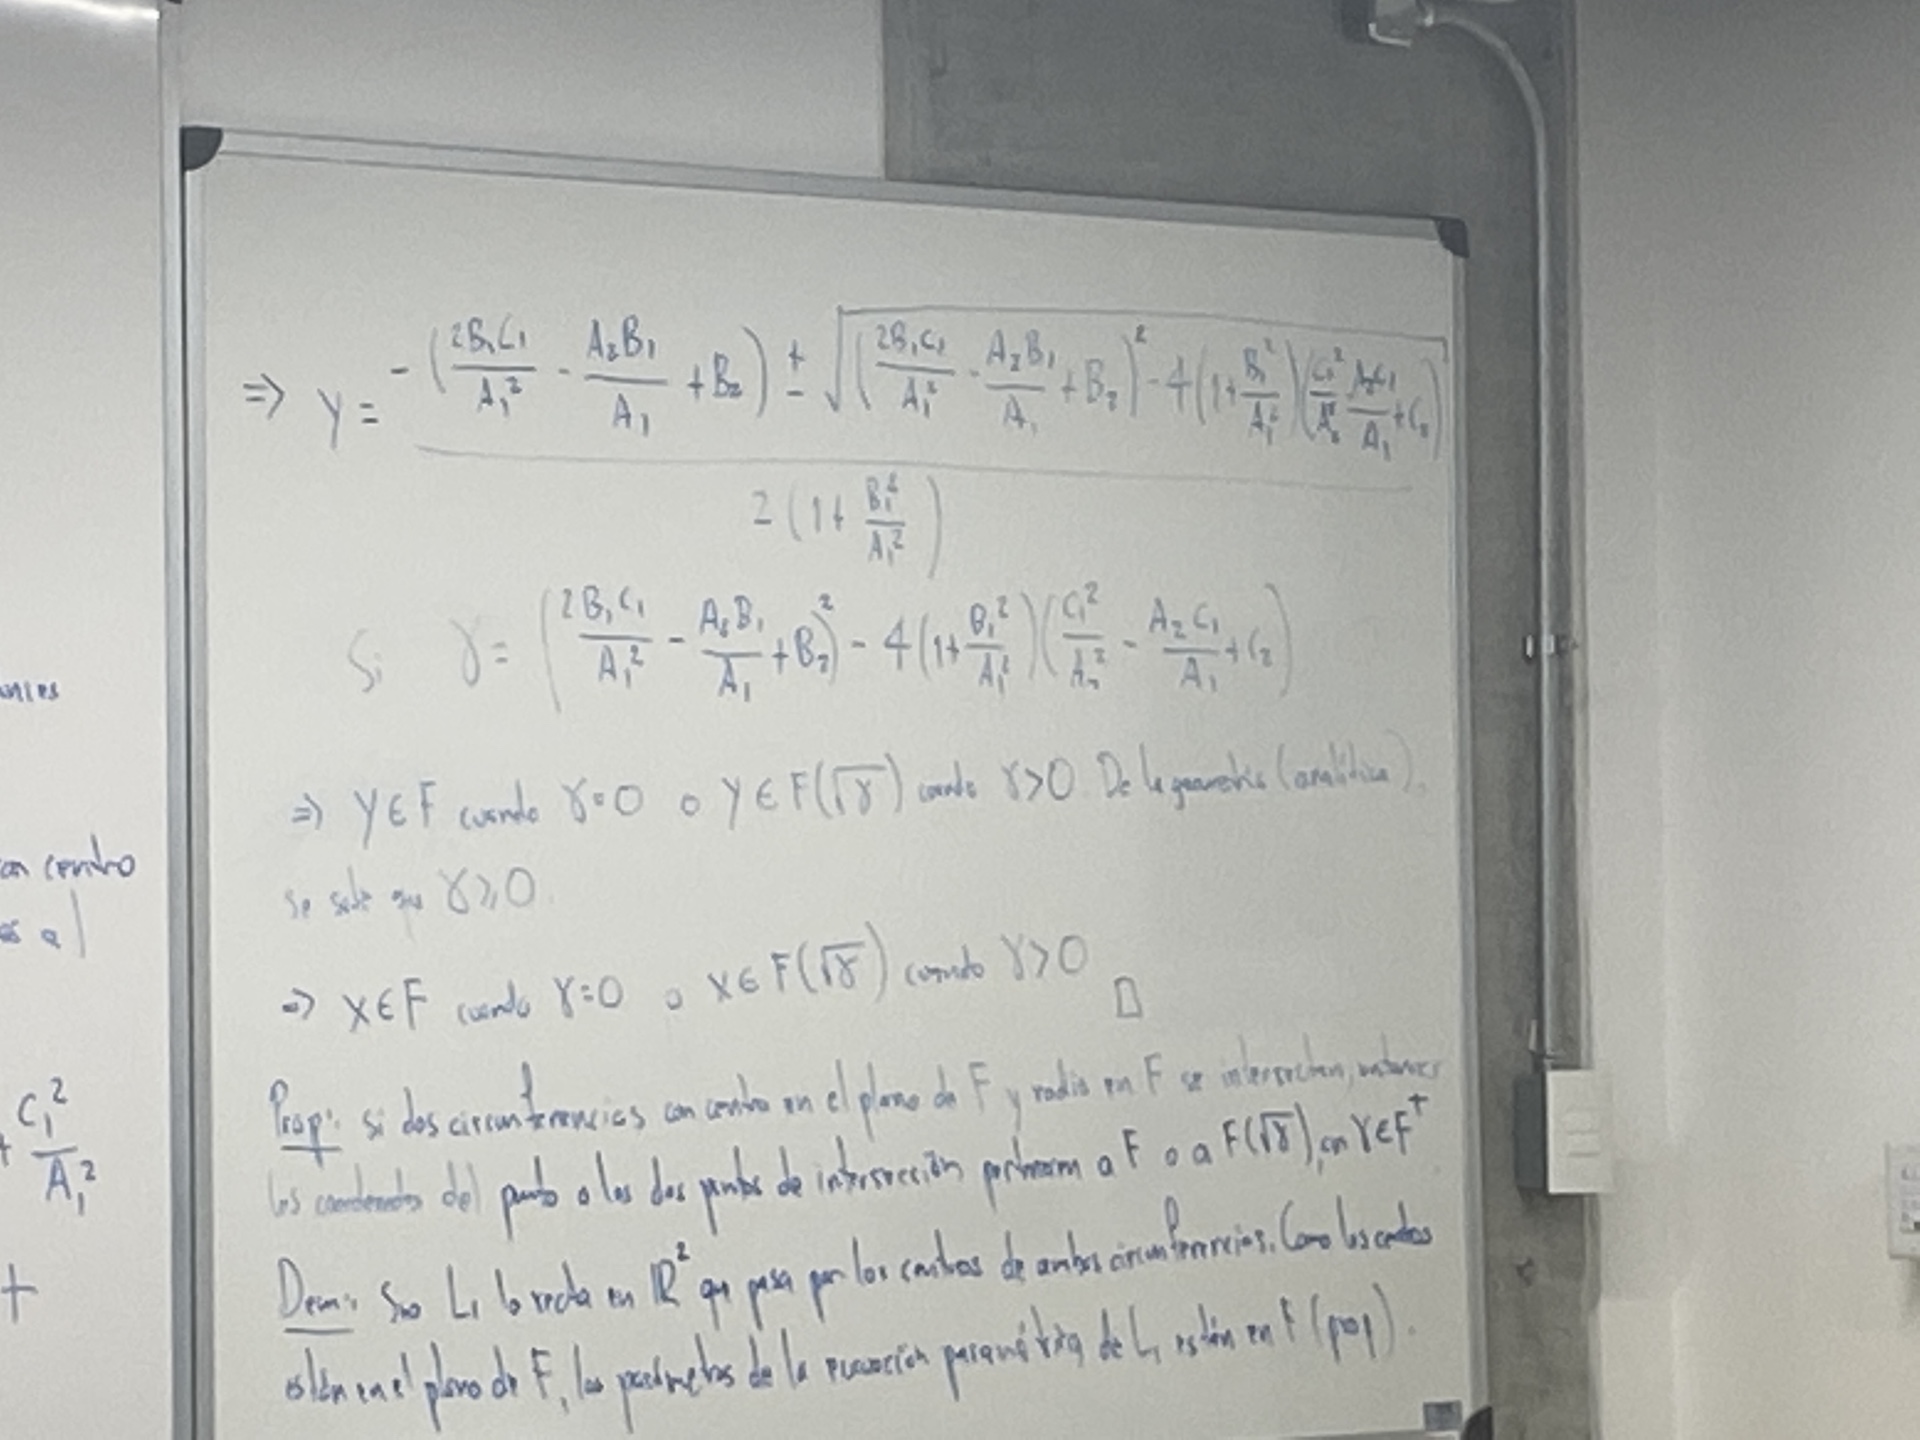 ⇒ y = −(2B₁C₁/A₁² − A₂B₁/A₁ + B₂) ± √((2B₁C₁/A₁² − A₂B₁/A₁ + B₂)² − 4(1 + B₁²/A₁²)(C₁²/A₁² A₂C₁/A₁ + C₂))
2(1 + B₁²/A₁²)
Si γ = (2B₁C₁/A₁² − A₂B₁/A₁ + B₂)² − 4(1 + B₁²/A₁²)(C₁²/A₁² − A₂C₁/A₁ + C₂)
⇒ y ∈ F cuando γ = 0 o y ∈ F(√γ) cuando γ > 0. De la geometría (analítica)
se sabe que γ ⩾ 0.
⇒ x ∈ F cuando γ = 0 o x ∈ F(√γ) cuando γ > 0 □
Prop: si dos circunferencias con centro en el plano de F y radio en F se intersectan, entonces
las coordenadas del punto o los dos puntos de intersección pertenecen a F o a F(√γ), con γ ∈ F⁺
Dem: Sea L₁ la recta en ℝ² que pasa por los centros de ambas circunferencias. Como los centros
están en el plano de F, los parámetros de la ecuación paramétrica de L₁ están en F (prop).
con centro
a
C₁²/A₁²
+